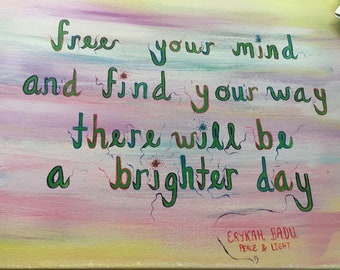 free your mind
and find your way
there will be
a brighter day
ERYKAH BADU
PEACE & LIGHT